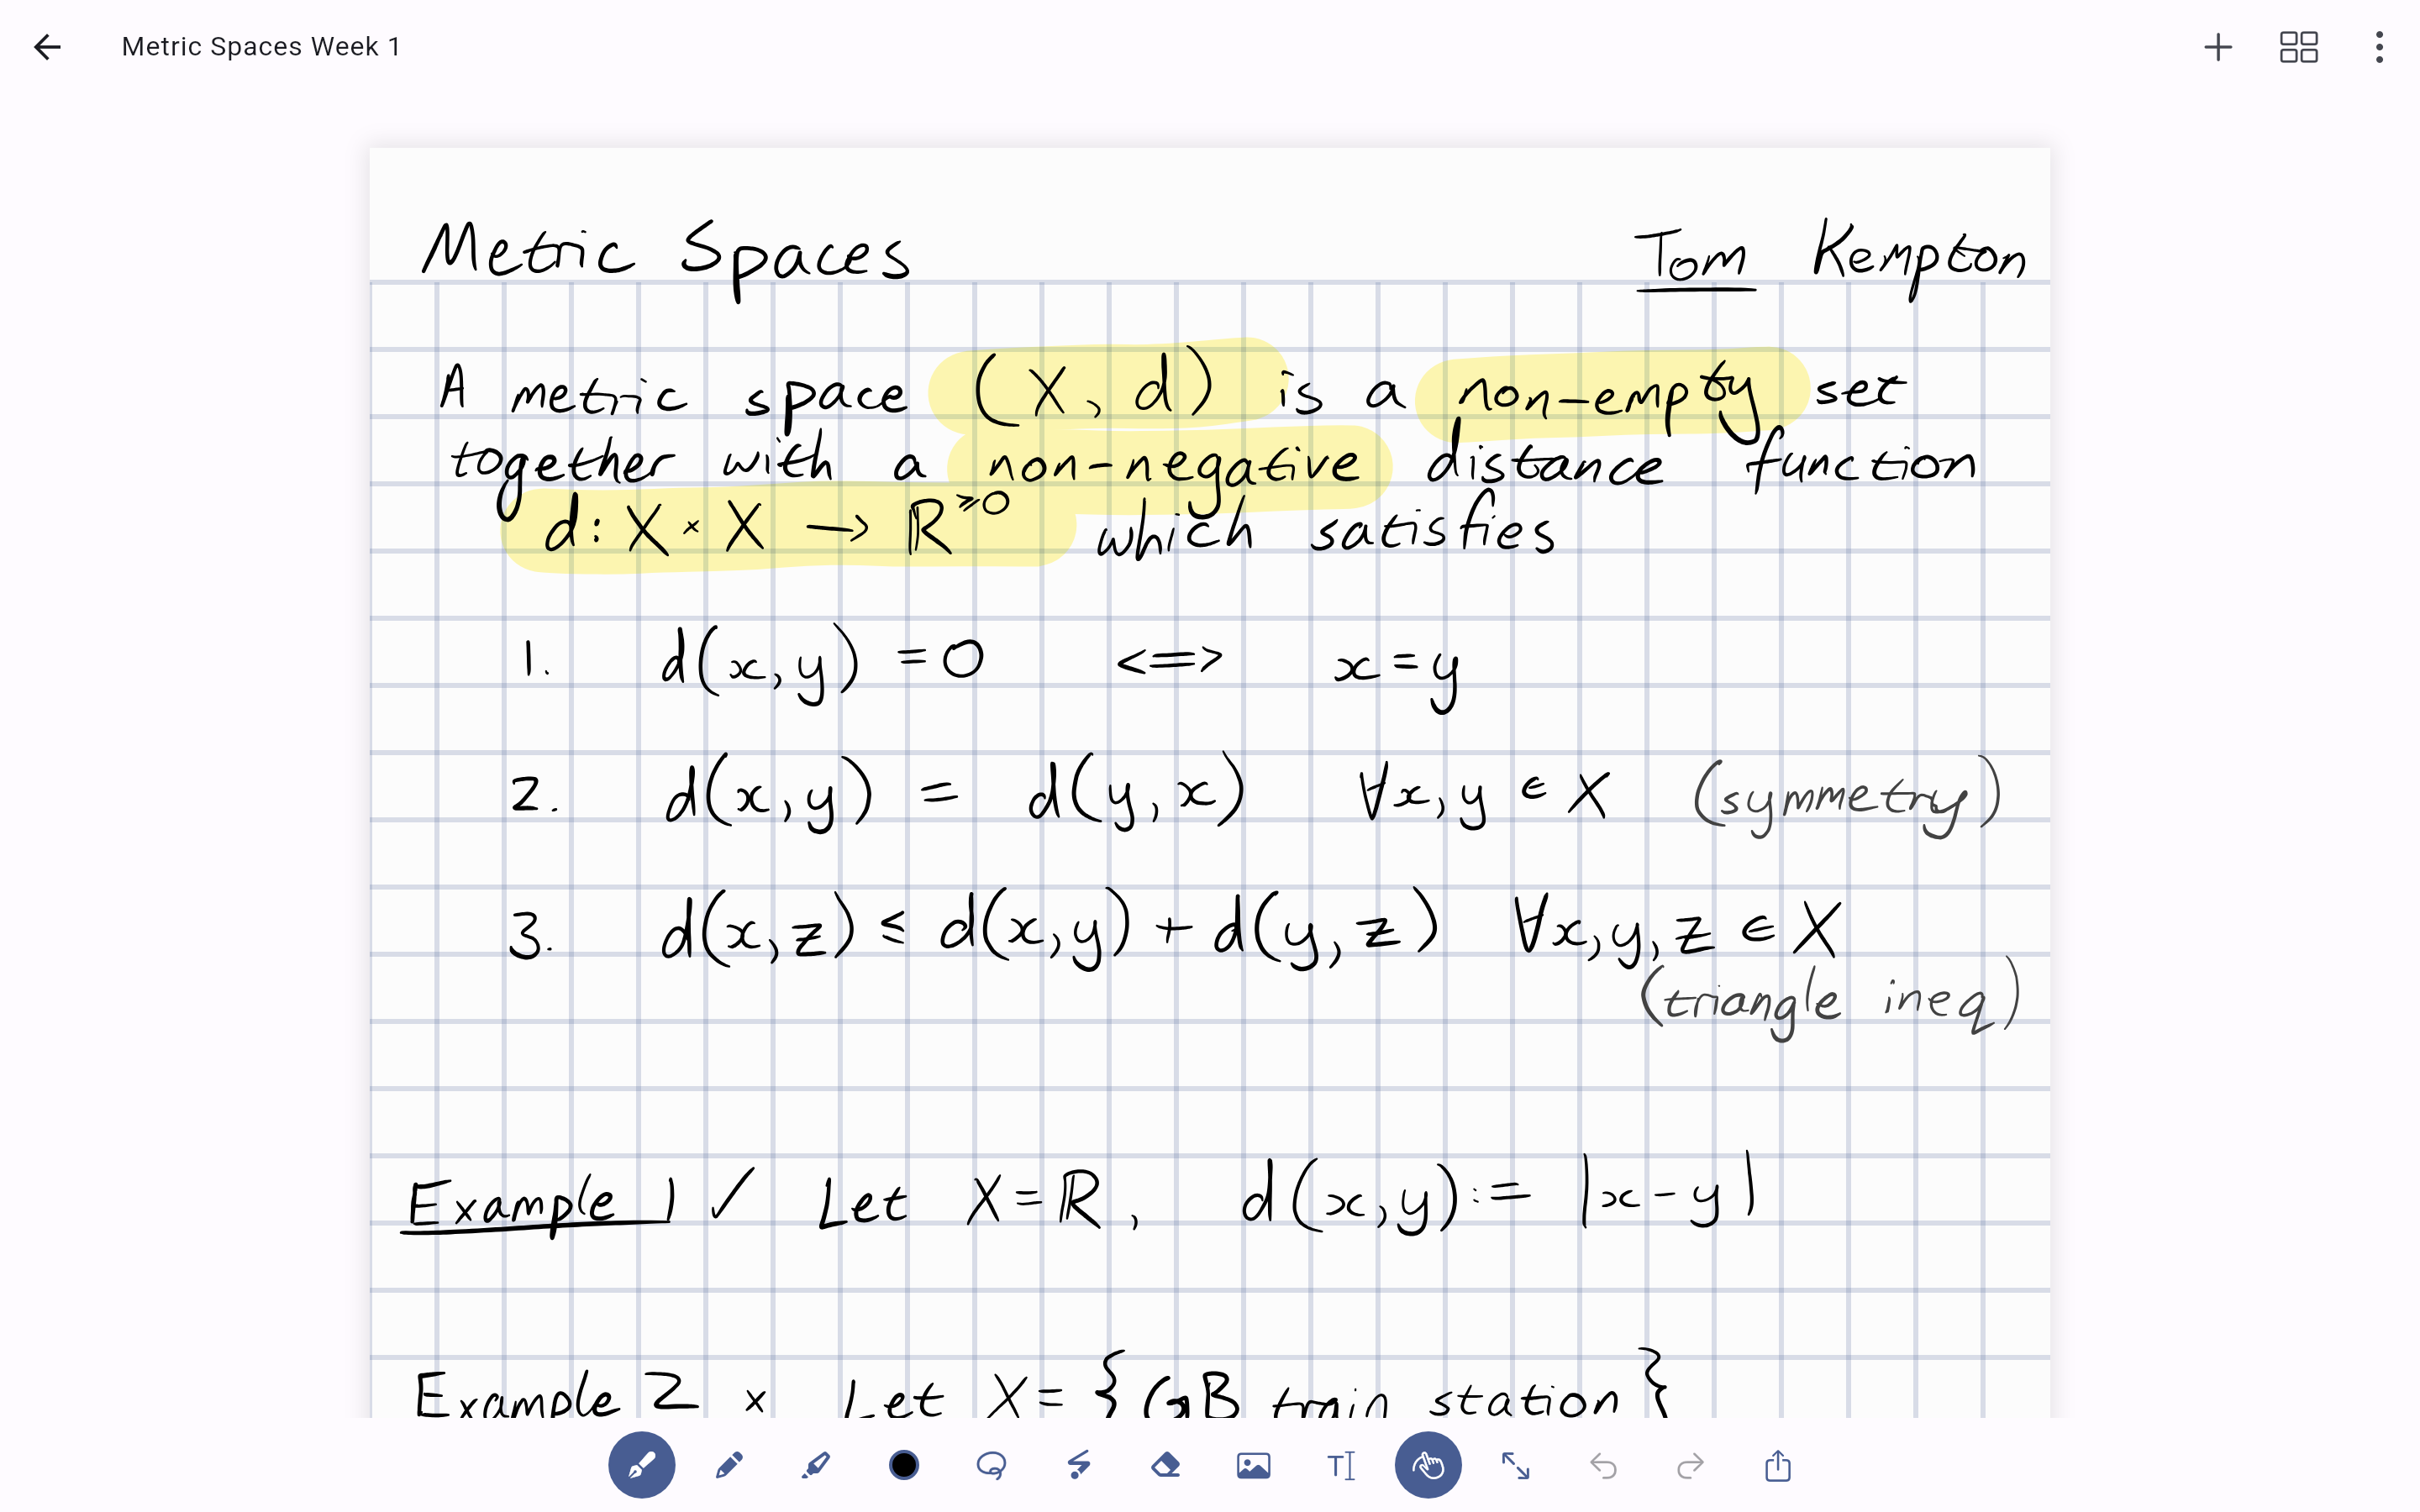 Metric Spaces Week 1
Metric Spaces Tom Kempton
A metric space (X, d) is a non-empty set
together with a non-negative distance function
d: X × X → ℝ^≥0 which satisfies
1. d(x,y) = 0 <=> x=y
2. d(x,y) = d(y,x) ∀x,y ∈ X (symmetry)
3. d(x,z) ≤ d(x,y) + d(y,z) ∀x,y,z ∈ X
(triangle ineq)
Example 1 ✓ Let X=ℝ, d(x,y):= |x-y|
Example 2 × Let X= {GB train station}